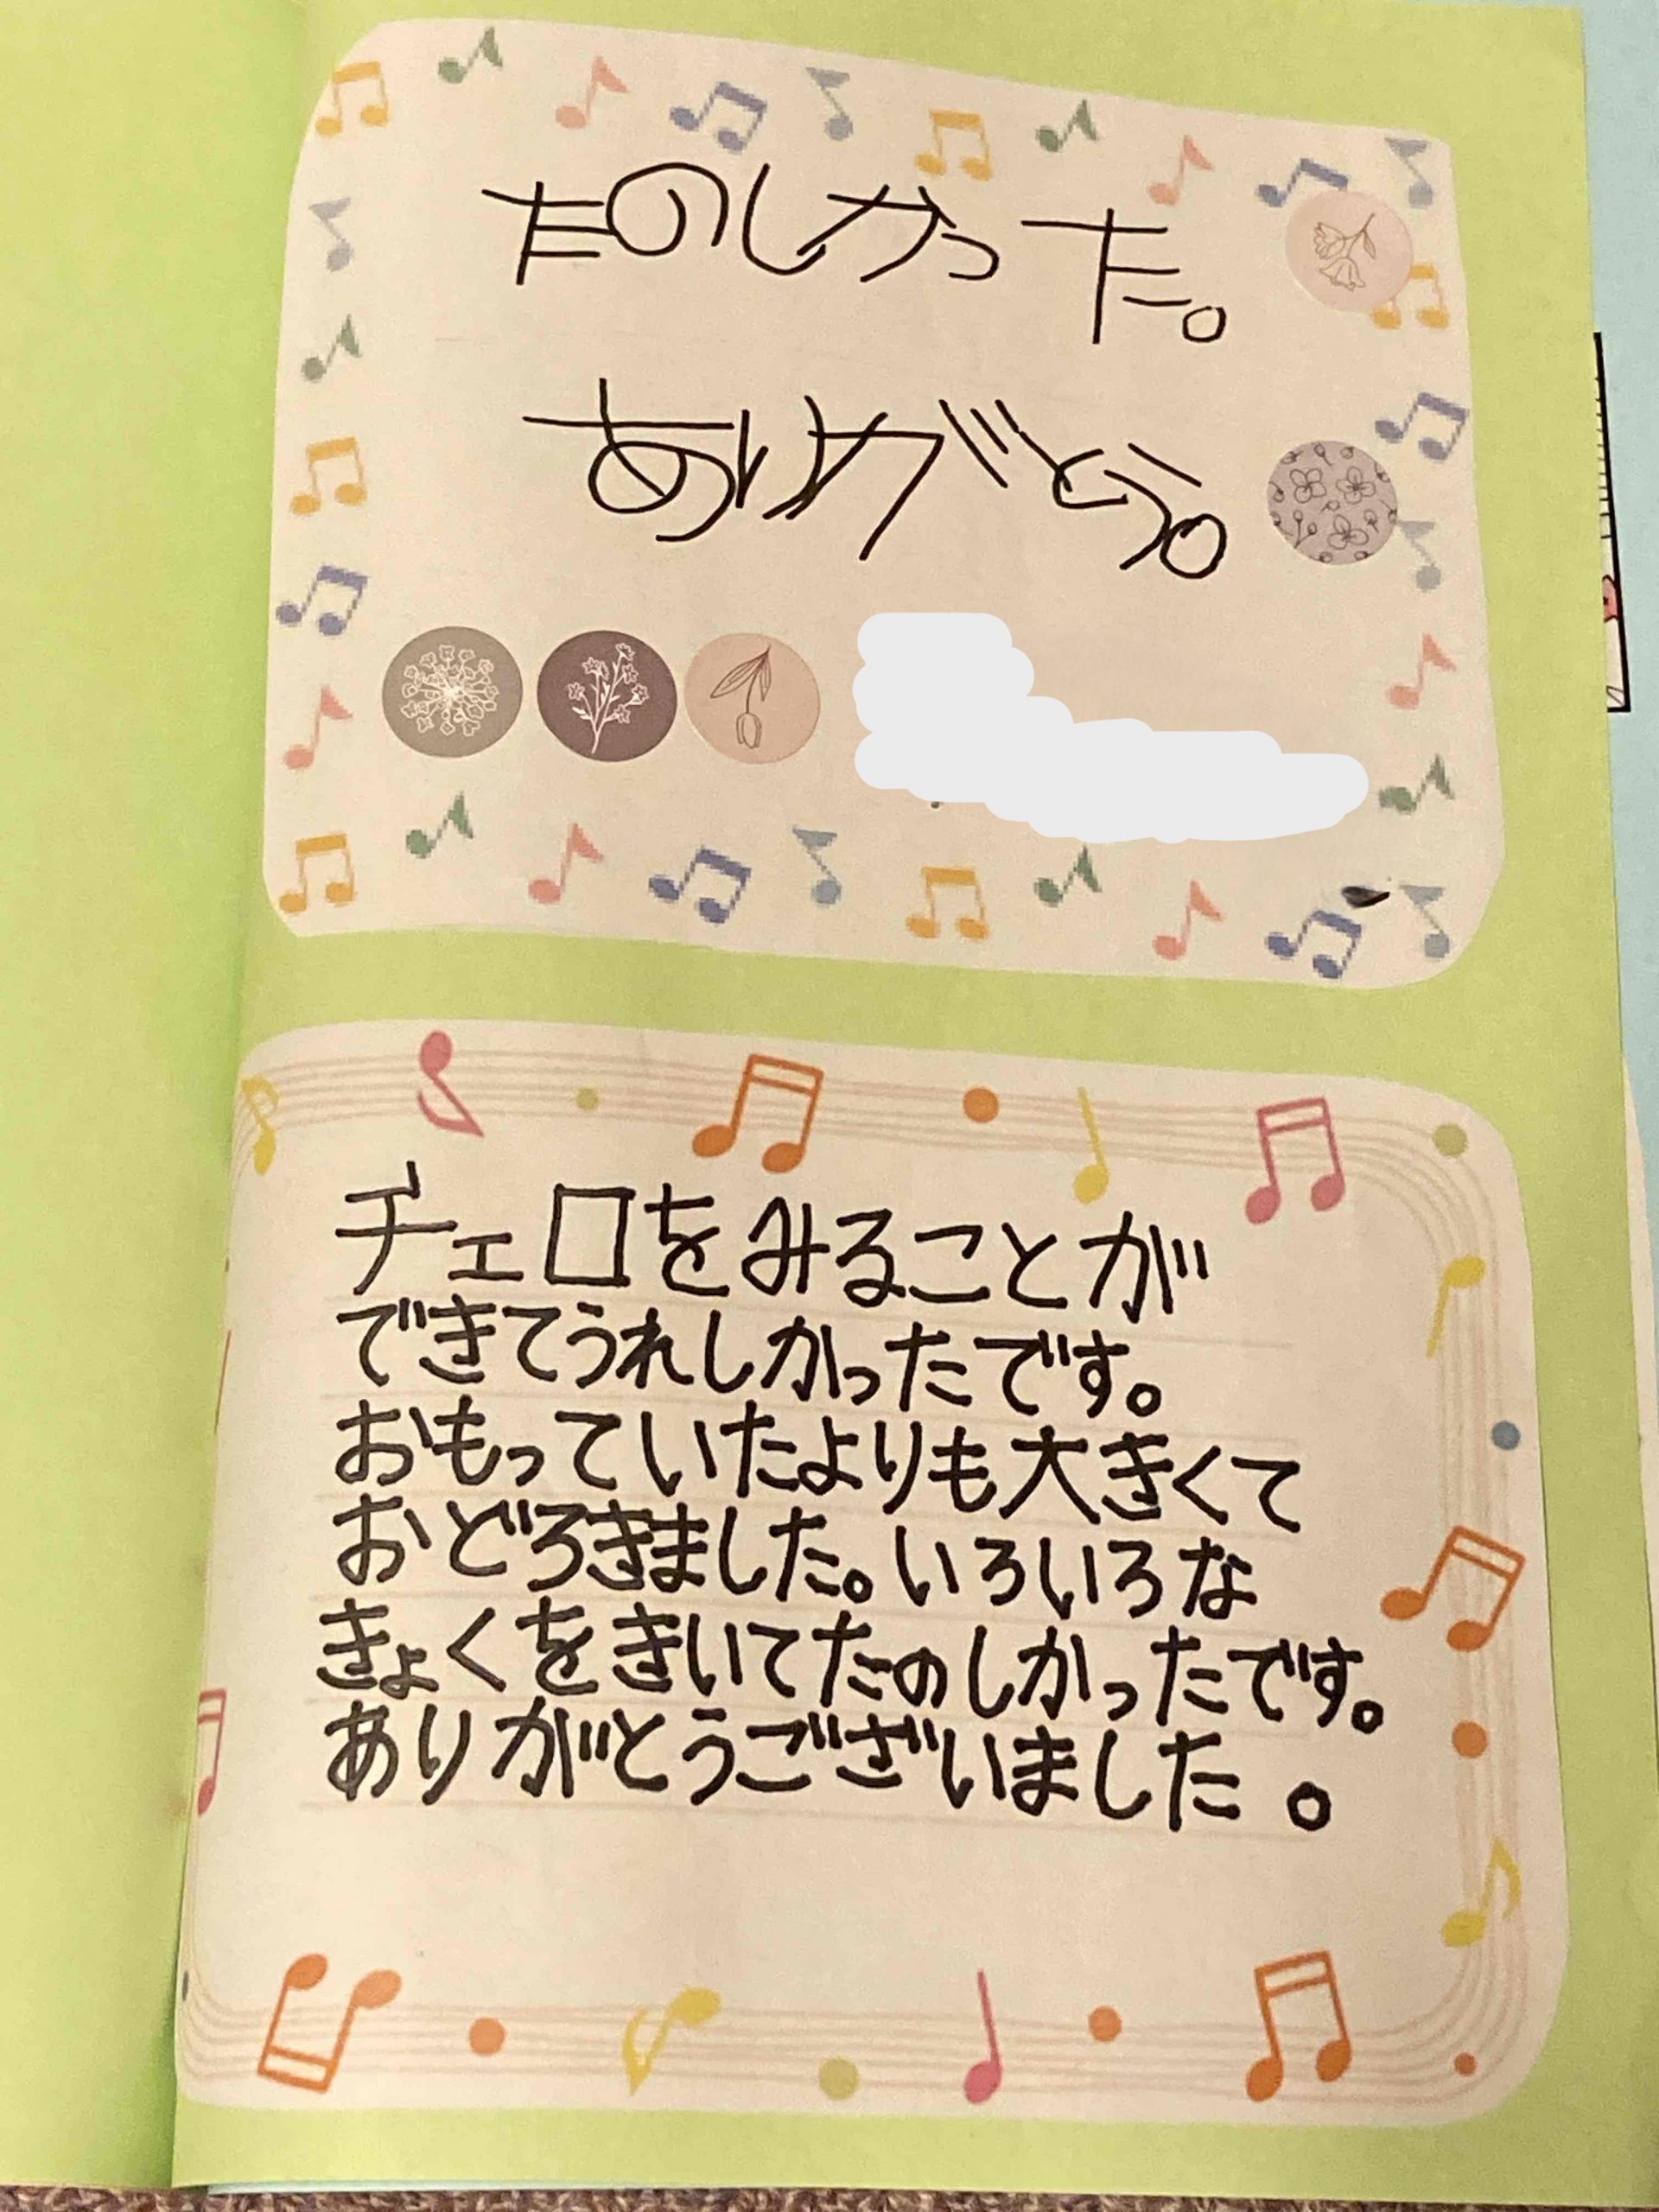 たのしかった。
ありがとう。
チェロをみることが
できてうれしかったです。
おもっていたよりも大きくて
おどろきました。いろいろな
きょくをきいてたのしかったです。
ありがとうございました。